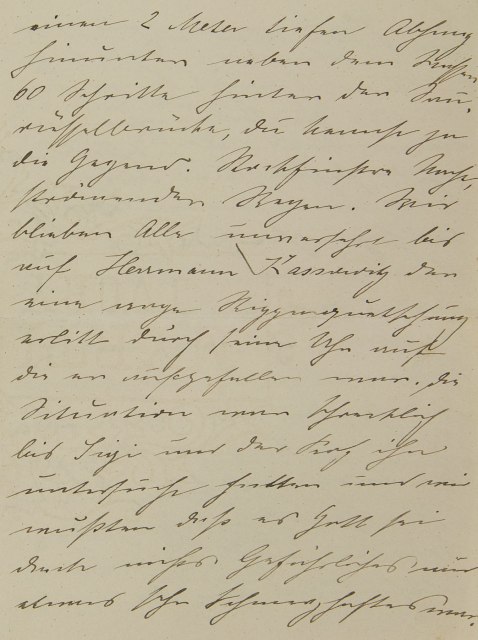 einen 2 Meter tiefen Abhang
hinunter neben dem
60 Schritte hinter der Sau-
rüsselbrücke, du kennst ja
die Gegend. Stockfinstre Nacht,
strömender Regen. Wir
blieben Alle unversehrt bis
auf Herrmann Kassowitz der
eine arge Rippenquetschung
erlitt durch seine Uhr auf
die er aufgefallen war. Die
Situation war schrecklich
bis Sigi und der ihn
untersucht hatten und wir
wußten daß es Gott sei
dank nichts Gefährliches nur
etwas sehr Schmerzhaftes war.